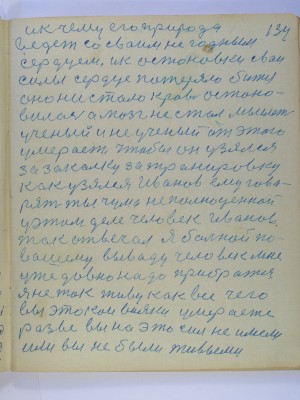 и к чему его природа 134
ведет со своим не годным
сердцем, и к остоновки свои
силы сердце потеряло битя
оно ни стало кровь остоно-
вилося а мозг не стал мыслит
ученый и не ученый от этого
умерает чтобы он узялся
за закалку за транировку
как узялся Иванов Ему гово-
рят ты чуть неполноценной
у этом деле человек Иванов
так отвечал Я больной по-
вашему вываду человек мне
уже довно надо прибратся
Я не так живу как все чего
вы этокои умераете
разве вы на это сил не имели
или вы не были живыми